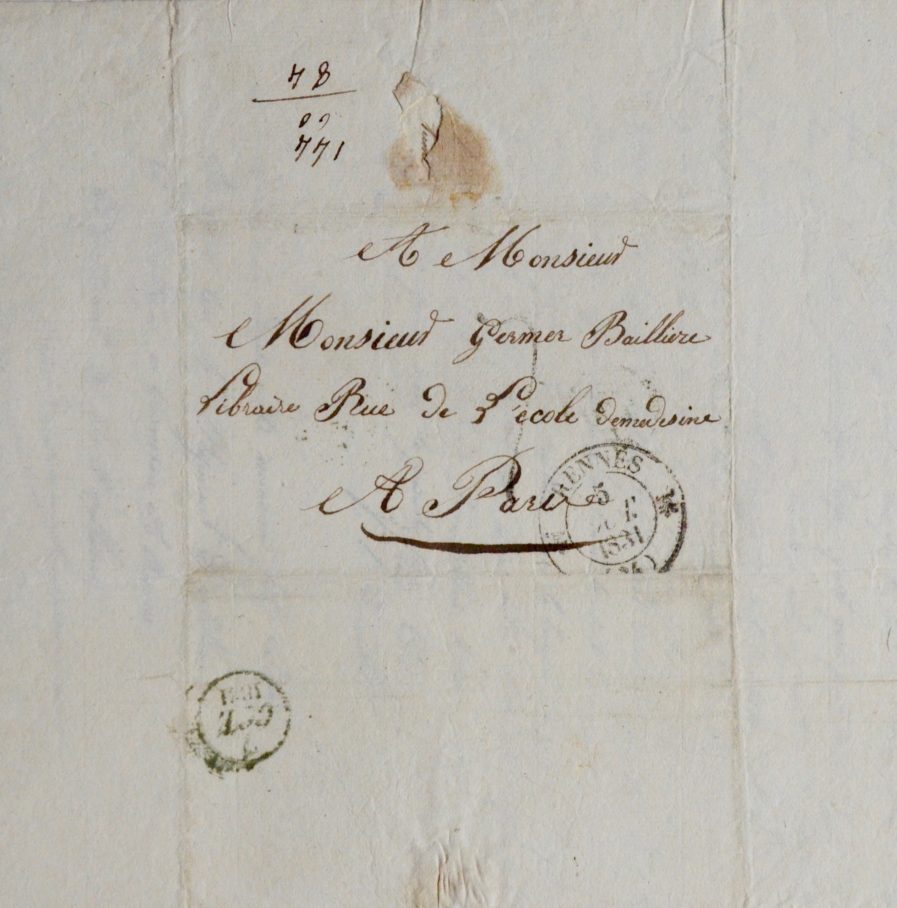 48
771
A Monsieur
Monsieur Germer Bailliere
Libraire Rue de L'école demedesine
A Paris
RENNES
5
1831
1831